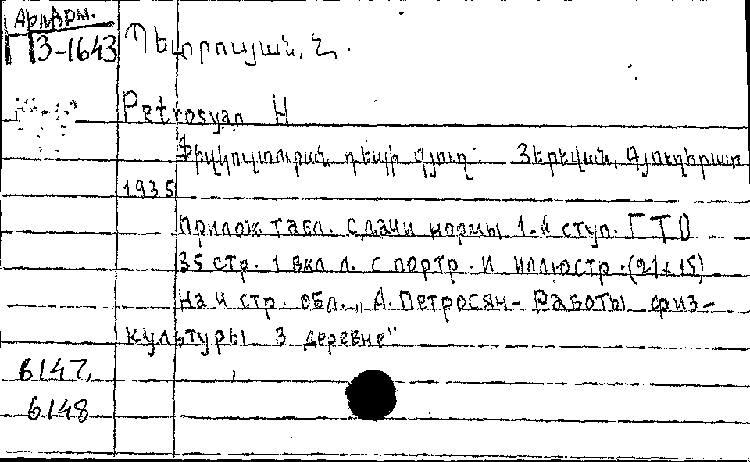 Арм.
ПЗ-1643
Պետրոսյան, Հ.
Petrosyan H
Ֆիզկուլտուրան դեպի գյուղ. Յերևան, Գյուղհրատ
1935
прилож. табл. сдачи нормы 1-й ступ. ГТО
35 стр. 1 вкл л. с портр. и иллюстр. (21x15)
На 4 стр. обл. „А. Петросян – Работы физ-
культуры в деревне"
6147,
6148